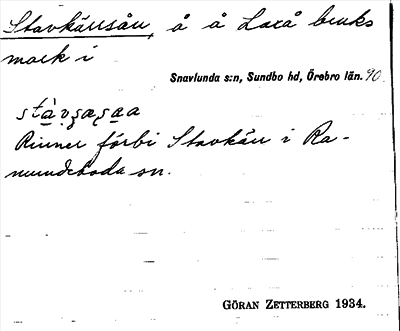 Stavkärrsån, å å Laxå bruks
mark i
Snavlunda s:n, Sundbo hd, Örebro län. 90.
Rinner förbi Stavkärr i Ra-
mundeboda sn.
GÖRAN ZETTERBERG 1934.